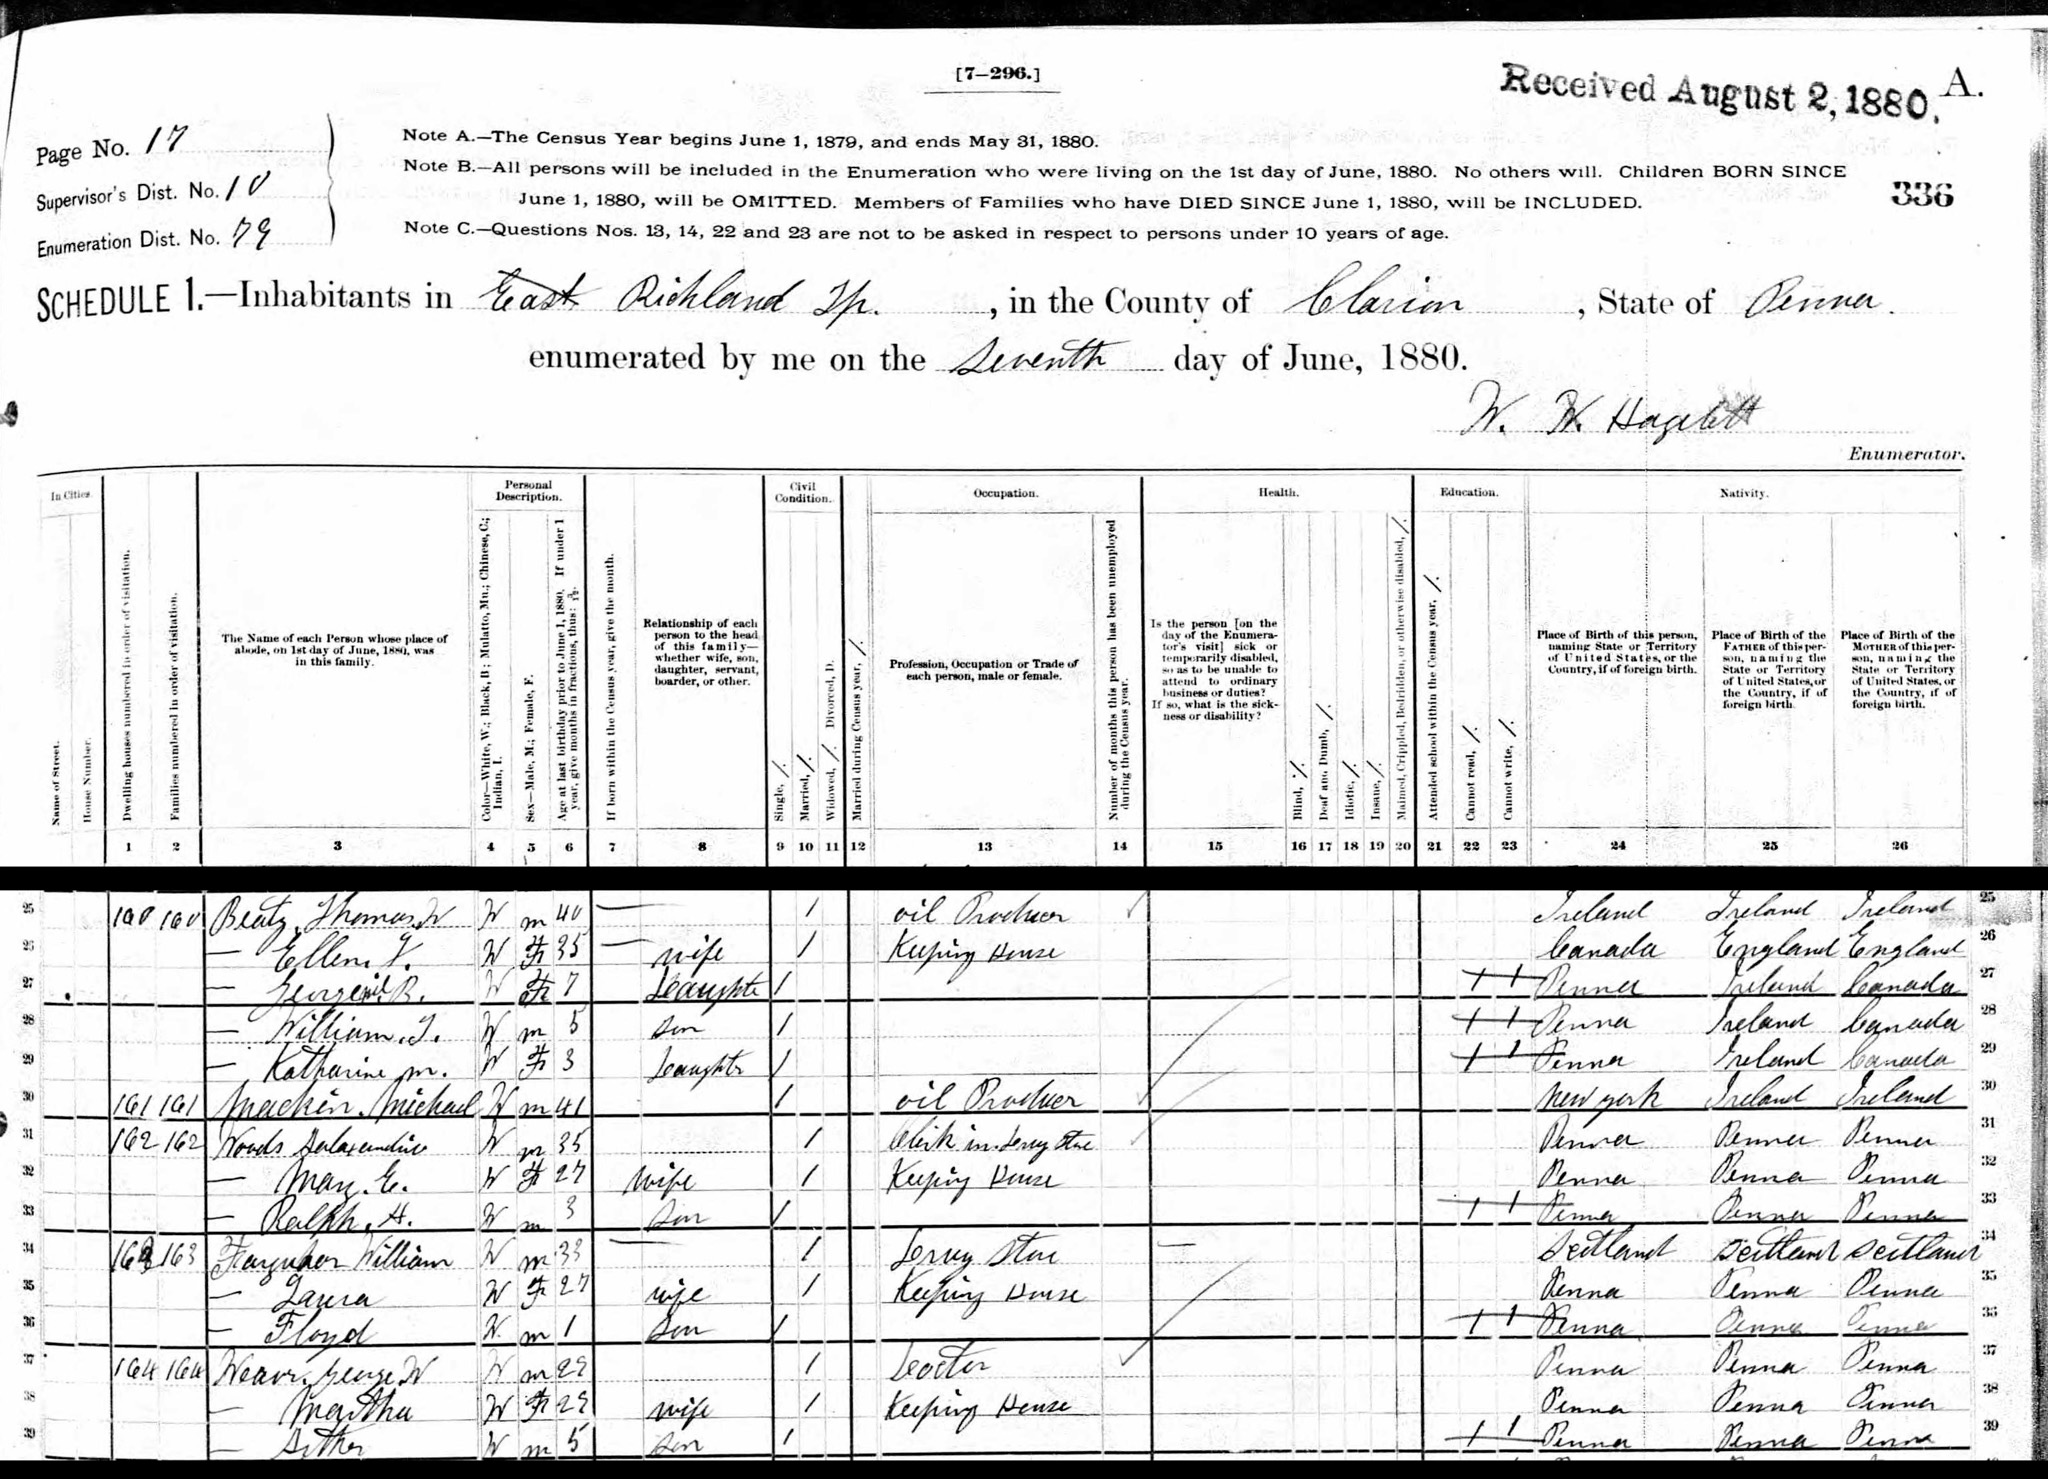 [7–296.]
Received August 2, 1880.
A.
Page No. 17
Supervisor's Dist. No. 10
Enumeration Dist. No. 79
Note A.—The Census Year begins June 1, 1879, and ends May 31, 1880.
Note B.—All persons will be included in the Enumeration who were living on the 1st day of June, 1880. No others will. Children BORN SINCE
June 1, 1880, will be OMITTED. Members of Families who have DIED SINCE June 1, 1880, will be INCLUDED.
Note C.—Questions Nos. 13, 14, 22 and 23 are not to be asked in respect to persons under 10 years of age.
336
SCHEDULE 1.—Inhabitants in East Richland Tp. , in the County of Clarion , State of Penna.
enumerated by me on the Seventh day of June, 1880.
W. W.
Enumerator.
In Cities.
Name of Street.
House Number.
Dwelling houses numbered in order of visitation.
Families numbered in order of visitation.
The Name of each Person whose place of
abode, on 1st day of June, 1880, was
in this family.
Personal
Description.
Color—White, W.; Black, B; Mulatto, Mu.; Chinese, C.;
Indian, I.
Sex—Male, M.; Female, F.
Age at last birthday prior to June 1, 1880. If under 1
year, give months in fractions, thus: 3/12.
If born within the Census year, give the month.
Relationship of each
person to the head
of this family—
whether wife, son,
daughter, servant,
boarder, or other.
Civil
Condition.
Single, /.
Married, /.
Widowed, /. Divorced, D.
Married during Census year, /.
Occupation.
Profession, Occupation or Trade of
each person, male or female.
Number of months this person has been unemployed
during the Census year.
Health.
Is the person [on the
day of the Enumera-
tor's visit] sick or
temporarily disabled,
so as to be unable to
attend to ordinary
business or duties?
If so, what is the sick-
ness or disability?
Blind, /.
Deaf and Dumb, /.
Idiotic, /.
Insane, /.
Maimed, Crippled, Bedridden, or otherwise disabled, /.
Education.
Attended school within the Census year, /.
Cannot read, /.
Cannot write, /.
Nativity.
Place of Birth of this person,
naming State or Territory
of United States, or the
Country, if of foreign birth.
Place of Birth of the
FATHER of this per-
son, naming the
State or Territory
of United States, or
the Country, if of
foreign birth.
Place of Birth of the
MOTHER of this per-
son, naming the
State or Territory
of United States, or
the Country, if of
foreign birth.
1 2 3 4 5 6 7 8 9 10 11 12 13 14 15 16 17 18 19 20 21 22 23 24 25 26
25 160 160 Beatty, Thomas W W m 40 — 1 oil Producer Ireland Ireland Ireland 25
25 — Ellen W F 35 — wife 1 Keeping House Canada England England 26
27 — R. W F 7 Daughte 1 1 1 Penna Ireland Canada 27
28 — William. J. W m 5 Son 1 1 1 Penna Ireland Canada 28
29 — Katharine m. W F 3 Daughte 1 1 1 Penna Ireland Canada 29
30 161 161 Mackin. Michael W m 41 1 oil Producer New York Ireland Ireland 30
31 162 162 Woods W m 35 1 Clerk in Drug Store Penna Penna Penna 31
32 — Mary. E. W F 27 wife 1 Keeping House Penna Penna Penna 32
33 — Ralph. H. W m 3 Son 1 1 1 Penna Penna Penna 33
34 163 163 Farquhar William W m 33 — 1 Drug Store — Scotland Scotland Scotland 34
35 — Laura W F 27 wife 1 Keeping House Penna Penna Penna 35
36 — Floyd W. m 1 Son 1 1 1 Penna Penna Penna 35
37 164 164 Weaver. George W W m 29 1 Doctor Penna Penna Penna 37
38 — Martha W F 29 wife 1 Keeping House Penna Penna Penna 38
39 — Arther W m 5 Son 1 1 1 Penna Penna Penna 39